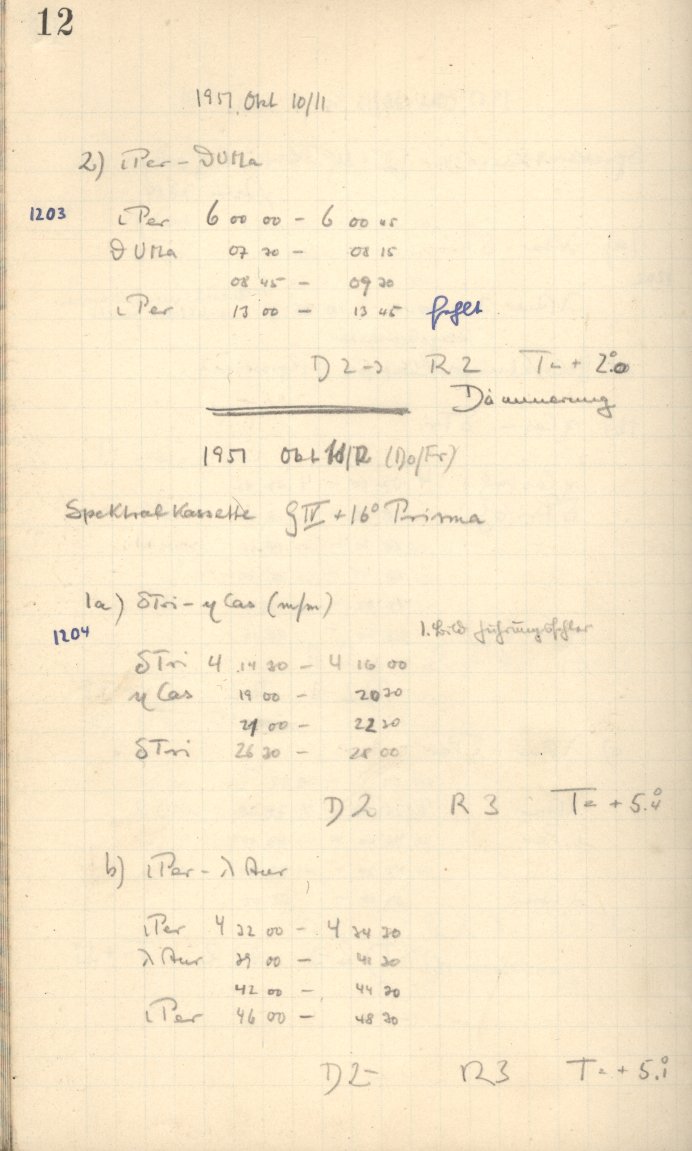 12
1951 Okt 10/11
2) ιPer – ϑUMa
1203 ιPer 6 00 00 – 6 00 45
ϑUMa 07 30 – 08 15
08 45 – 09 30
ιPer 13 00 – 13 45 fehlt
D 2-3 R 2 T = + 2°.0
Dämmerung
1951 Okt 11/12 (Do/Fr)
Spektralkassette G IV + 16° Prisma
1a) δTri – η Cas (m/m)
1204 1. Bild Führungsfehler
δTri 4 14 30 – 4 16 00
η Cas 19 00 – 20 30
21 00 – 22 30
δTri 26 30 – 28 00
D 2 R 3 T = + 5°.4
b) ιPer – λ Aur
ιPer 4 32 00 – 4 34 30
λ Aur 39 00 – 41 30
42 00 – 44 30
ιPer 46 00 – 48 30
D 2- R 3 T = + 5°.1